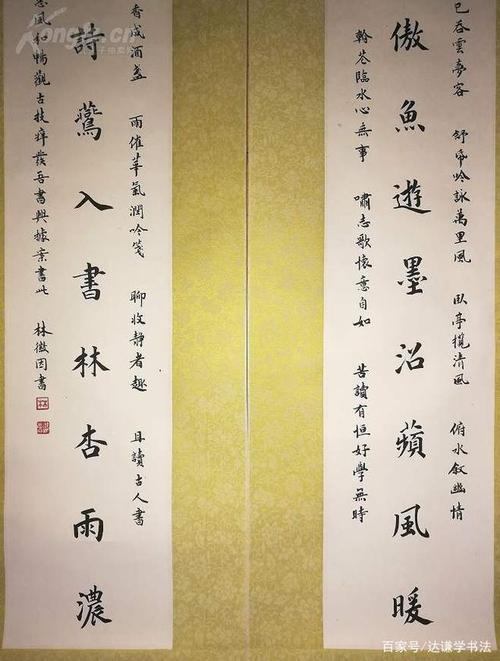 已吞雲夢客 舒帋吟詠萬里風 臥亭攬清風 俯水叙幽情
傲魚遊墨沼蘋風暖
臨水心無事 嘯志歌懷意自如 苦讀有恒好學無時
香成酒盞 雨催華氣潤吟箋 聊收靜者趣 且讀古人書
詩鶯入書林杏雨濃
風和暢觀古技痒發吾書興據案書此 林徽因書
百家号/达谦学书法